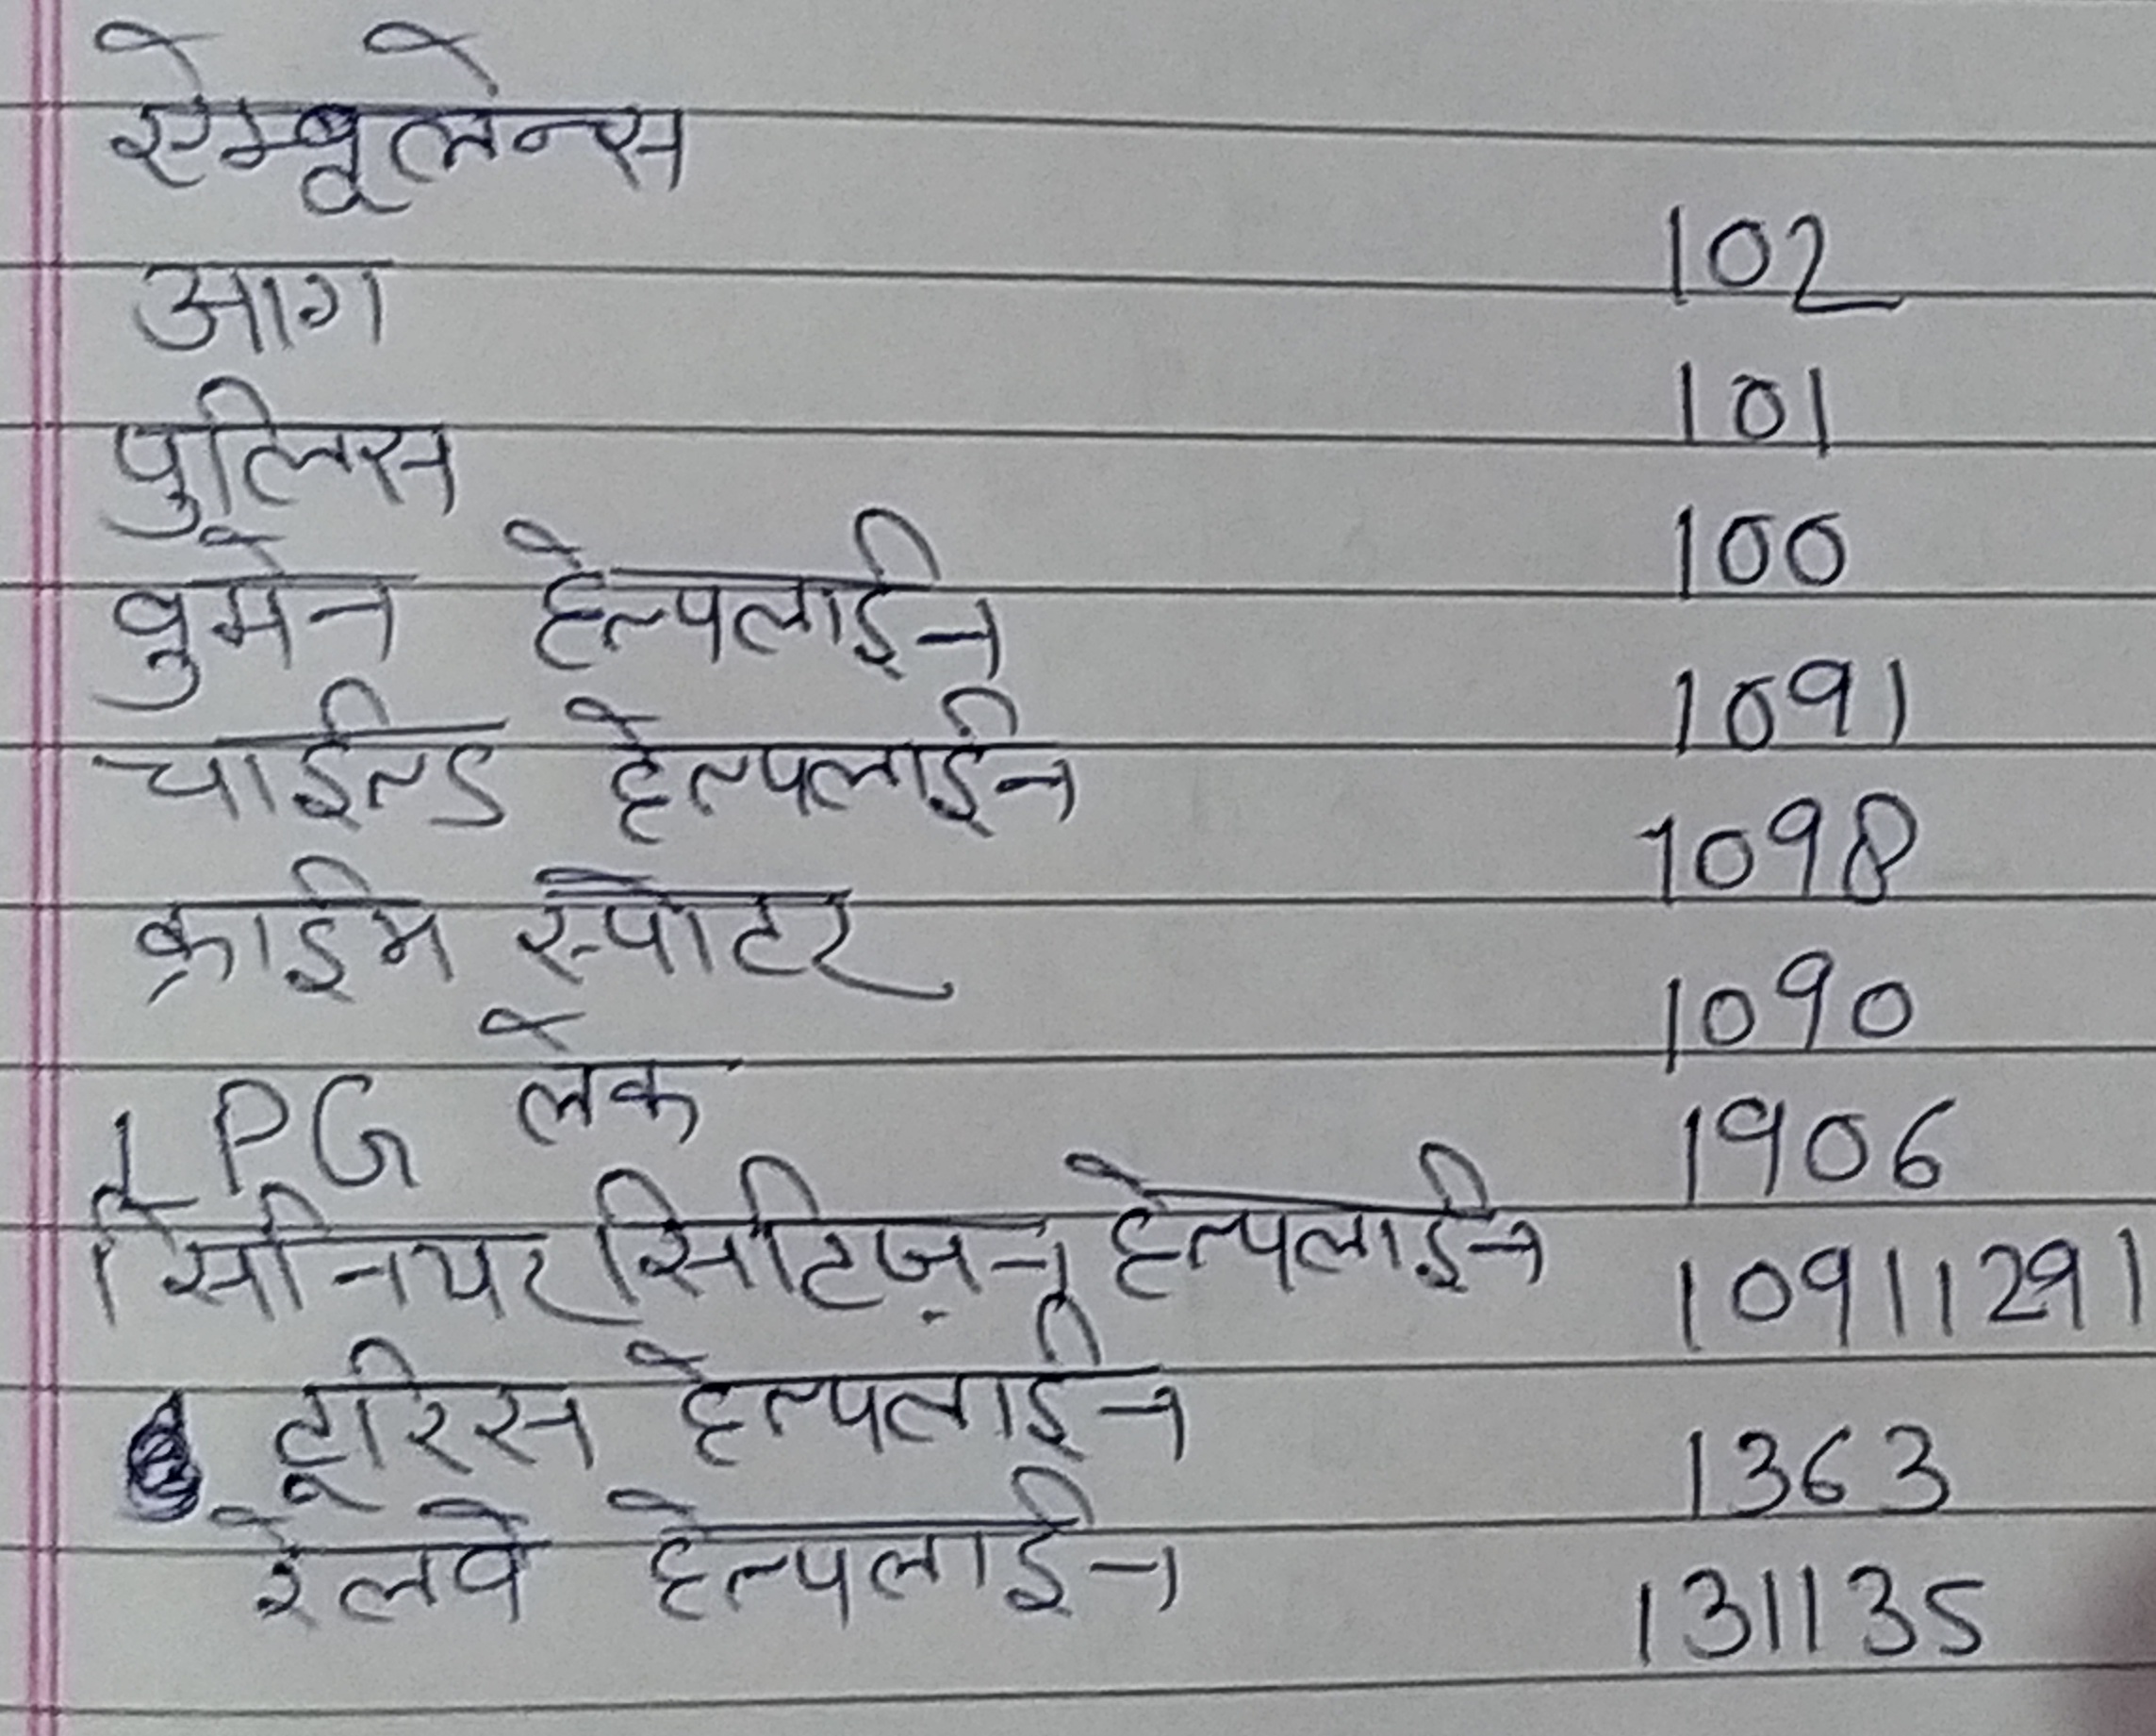 ऐम्बूलेन्स 102
आग 101
पुलिस 100
वुमेन हेल्पलाईन 1091
चाईल्ड हेल्पलाईन 1098
क्राईम स्पोटर 1090
LPG लेक 1906
सिनियर सिटिज़न हेल्पलाईन 10911291
टूरिस हेल्पलाईन 1363
रेलवे हेल्पलाईन 131135